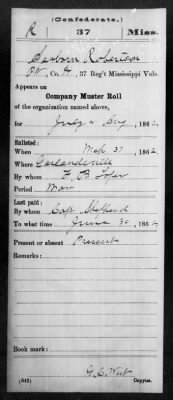 (Confederate.)
R 37 Miss.
Seaborn Robertson
Pvt, Co. A, 37 Reg't Mississippi Vols.
Appears on
Company Muster Roll
of the organization named above,
for July & Aug, 1862.
Enlisted:
When Mch 31, 1862.
Where Garlandville
By whom F. B. Loper
Period War
Last paid:
By whom Capt Shephard
To what time June 30, 1862.
Present or absent Present
Remarks:
Book mark:
G. C. West
(642) Copyist.